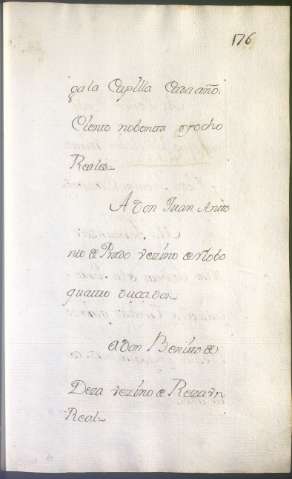 176
ga la Capilla Cada año
Ciento nobenta y ocho
Reales
A Don Juan Anto
nio de Prado vezino de
quatro ducados
a Don Benito de
Deza vezino de Reza Un
Real